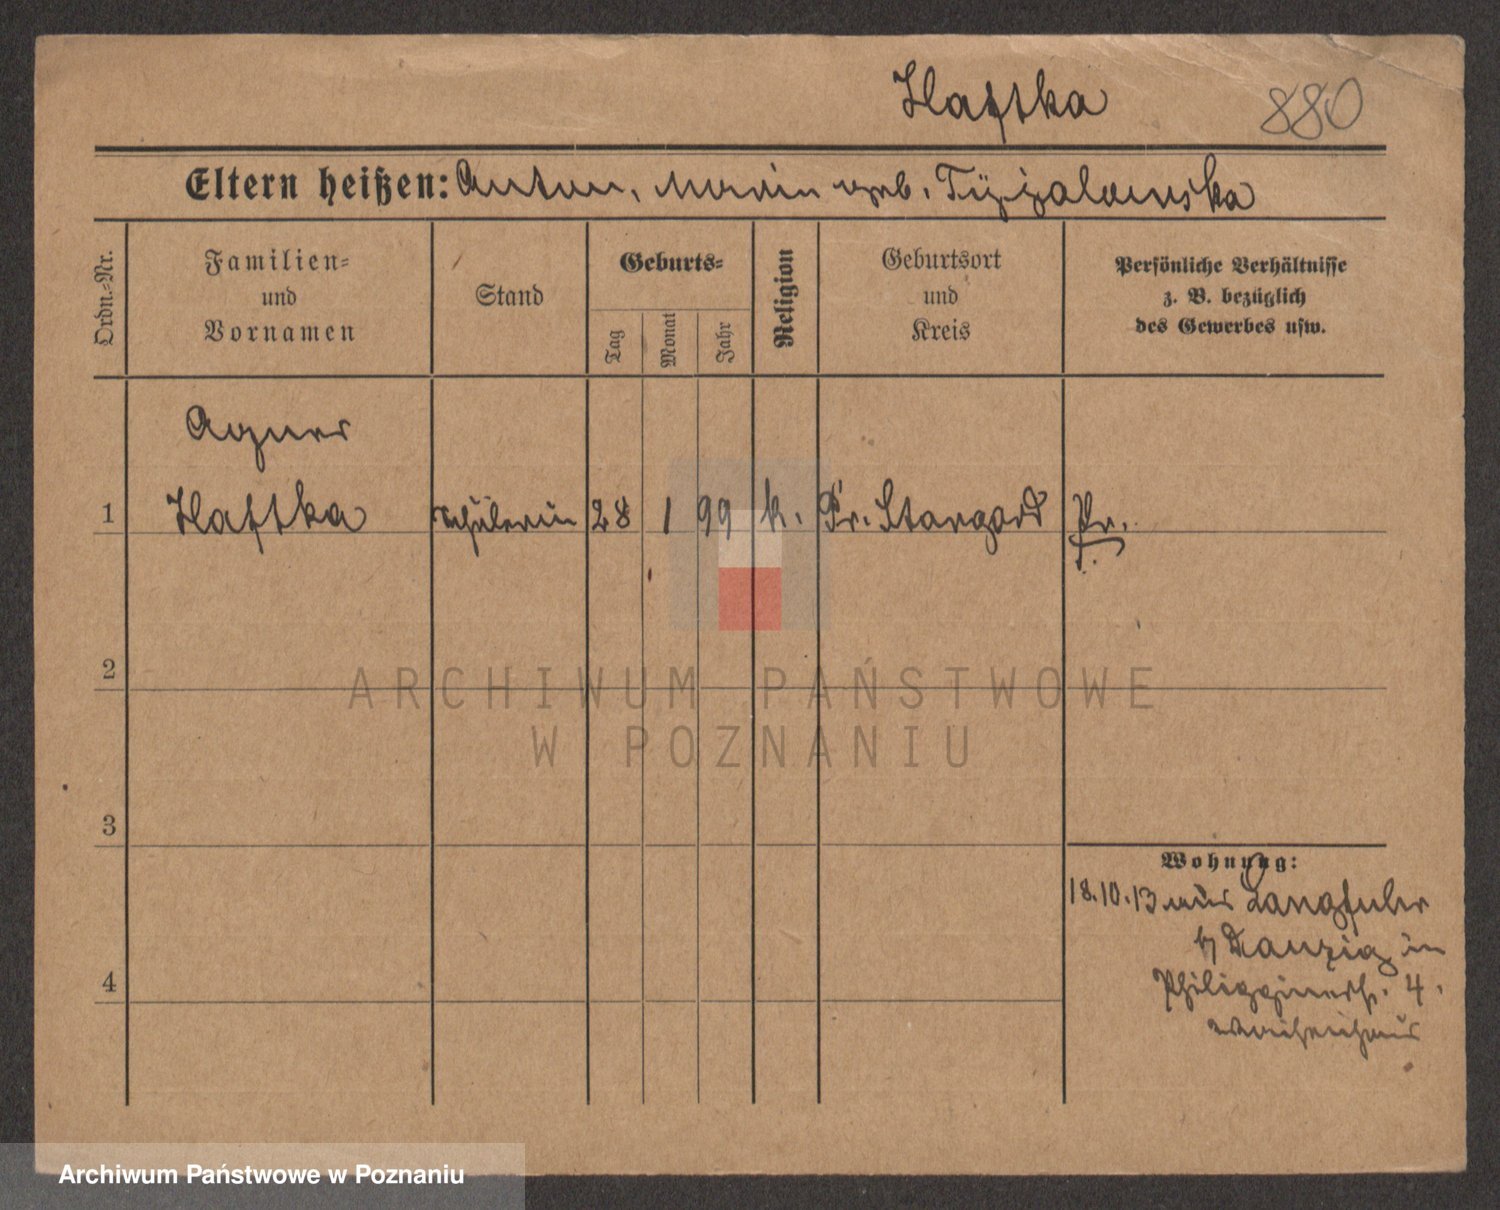 Haftka 880
Eltern heißen: Anton, Maria geb.
Ordn.-Nr.
Familien-
und
Vornamen
Stand
Geburts-
Tag
Monat
Jahr
Religion
Geburtsort
und
Kreis
Persönliche Verhältnisse
z. B. bezüglich
des Gewerbes usw.
Agnes
1 Haftka Schülerin 28 1 99 k. Pr. Stargard Pr.
2
3
4
Wohnung:
18.10.13 aus Langfuhr
b/ Danzig in
Philippinerst. 4.
Waisenhaus
ARCHIWUM PAŃSTWOWE
W POZNANIU
Archiwum Państwowe w Poznaniu